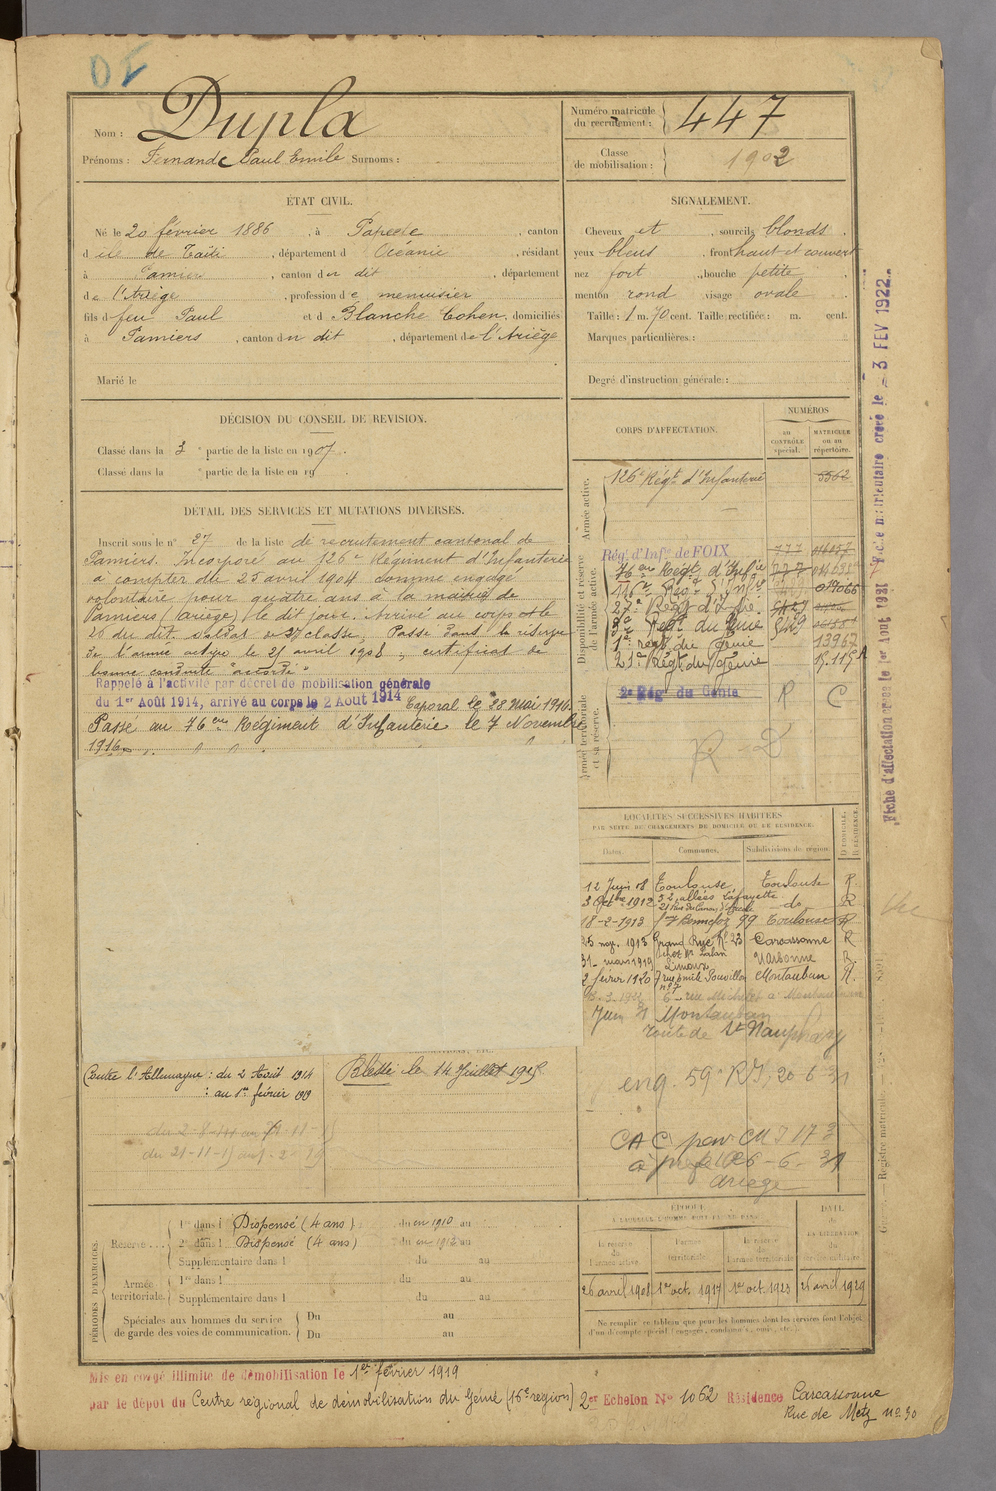 DI
Nom : Dupla
Prénoms : Fernand Paul Emile Surnoms :
Numéro matricule du recrutement : 447
Classe de mobilisation : 1902
ÉTAT CIVIL.
Né le 20 février 1886, à Papeete, canton
d île de Taïti, département d Océanie, résidant
à Pamiers, canton du dit, département
de l'Ariège, profession de menuisier
fils d feu Paul et d Blanche Cohen, domiciliés
à Pamiers, canton du dit, département de l'Ariège
Marié le
SIGNALEMENT.
Cheveux et, sourcils blonds.
yeux bleus, front haut et couvert
nez fort, bouche petite
menton rond visage ovale.
Taille : 1 m. 70 cent. Taille rectifiée : m. cent.
Marques particulières :
Degré d'instruction générale :
DÉCISION DU CONSEIL DE REVISION.
Classé dans la 3e partie de la liste en 1907.
Classé dans la e partie de la liste en 19 .
DÉTAIL DES SERVICES ET MUTATIONS DIVERSES.
Inscrit sous le n° 27 de la liste de recrutement cantonal de
Pamiers. Incorporé au 126e Régiment d'Infanterie
à compter du 25 avril 1904 comme engagé
volontaire pour quatre ans à la mairie de
Pamiers (Ariège) le dit jour. Arrivé au corps et le
26 du dit. soldat de 2e classe, Passé dans la réserve
de l'armée active le 25 avril 1908, certificat de
bonne conduite "accordé"
Rappelé à l'activité par décret de mobilisation générale
du 1er Août 1914, arrivé au corps le 2 Août 1914 Caporal le 28 Mai 1916.
Passé au 76eme Régiment d'Infanterie le 7 Novembre
1916.
CORPS D'AFFECTATION.
NUMÉROS
au CONTRÔLE spécial.
MATRICULE ou au répertoire.
Armée active.
126e Régt d'Infanterie 5562
Disponibilité et réserve de l'armée active.
Rég. d'Infie de FOIX 777
76eme Régt d'Infie
27e Régt d'Inf.
2e Régt du Génie
1er régt du génie 13967
21e Régt du Génie
Armée territoriale et sa réserve.
2e Rég. du Génie R C
R - 2
LOCALITÉS SUCCESSIVES HABITÉES
PAR SUITE DE CHANGEMENTS DE DOMICILE OU DE RÉSIDENCE.
Dates. Communes. Subdivisions de région. D DOMICILE, R RÉSIDENCE.
12 Juin 08 Toulouse Toulouse R.
3 Octbre 1912 32, allées Lafayette do R
18-2-1913 99 Toulouse R
25 nov. 1913 Grand Rue No 23 Carcassonne R
31 mars 1919 Limoux Narbonne R.
2 févier 1920 7 rue Emile Pouvillon Montauban R.
6 rue Michelet à Montauban
Juin 21 Montauban
route de St Nauphary
eng. 59e RI, 20-6-31
CAC par CM
à 26-6-31
Ariège
Contre l'Allemagne : du 2 Août 1914
: au 1er février 1919
Blessé le 14 Juillet 1915.
PÉRIODES D'EXERCICES.
Réserve....
1re dans l Dispensé (4 ans) du en 1910 au
2e dans l Dispensé (4 ans) du en 1912 au
Supplémentaire dans l du au
Armée territoriale.
1re dans l du au
Supplémentaire dans l du au
Spéciales aux hommes du service de garde des voies de communication.
Du au
Du au
ÉPOQUE
À LAQUELLE L'HOMME DOIT PASSER DANS :
la réserve de l'armée active
l'armée territoriale.
la réserve de l'armée territoriale
DATE DE LA LIBÉRATION du service militaire
26 avril 1908 1er oct. 1917 1er oct. 1923 25 avril 1929
Ne remplir ce tableau que pour les hommes dont les services font l'objet
d'un décompte spécial (engagés, condamnés, omis, etc.).
Mis en congé illimité de démobilisation le 1er février 1919
par le dépôt du Centre régional de démobilisation du Génie (16e région) 2er Echelon No 1062 Résidence Carcassonne
Rue de Metz no 30
Fiche d'affectation créée le 1er Août 1921
matriculaire créée le 3 FEV 1922
Registre matricule.